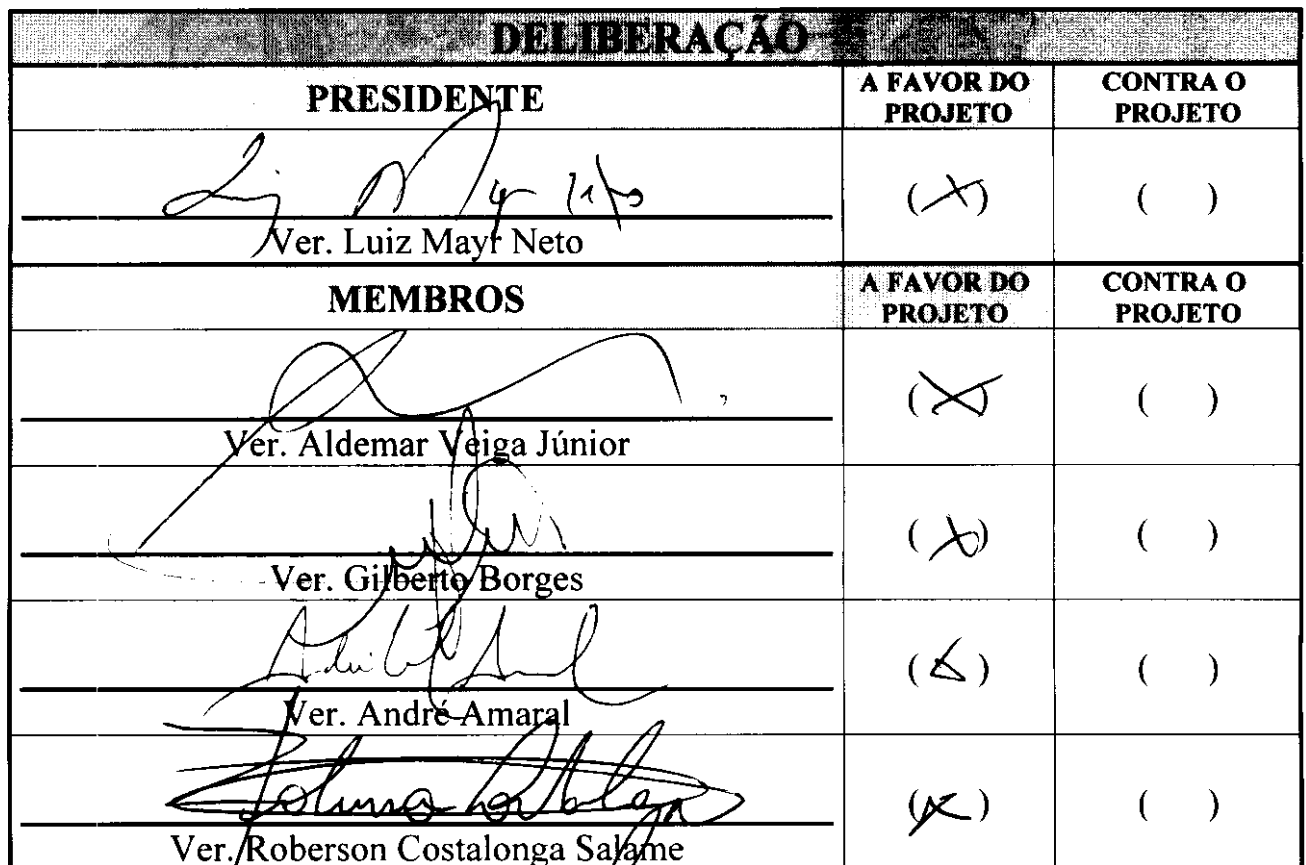 DELIBERAÇÃO
PRESIDENTE
A FAVOR DO PROJETO
CONTRA O PROJETO
( X ) ( )
Ver. Luiz Mayr Neto
MEMBROS
A FAVOR DO PROJETO
CONTRA O PROJETO
( X ) ( )
Ver. Aldemar Veiga Júnior
( X ) ( )
Ver. Gilberto Borges
( X ) ( )
Ver. André Amaral
( X ) ( )
Ver. Roberson Costalonga Salame